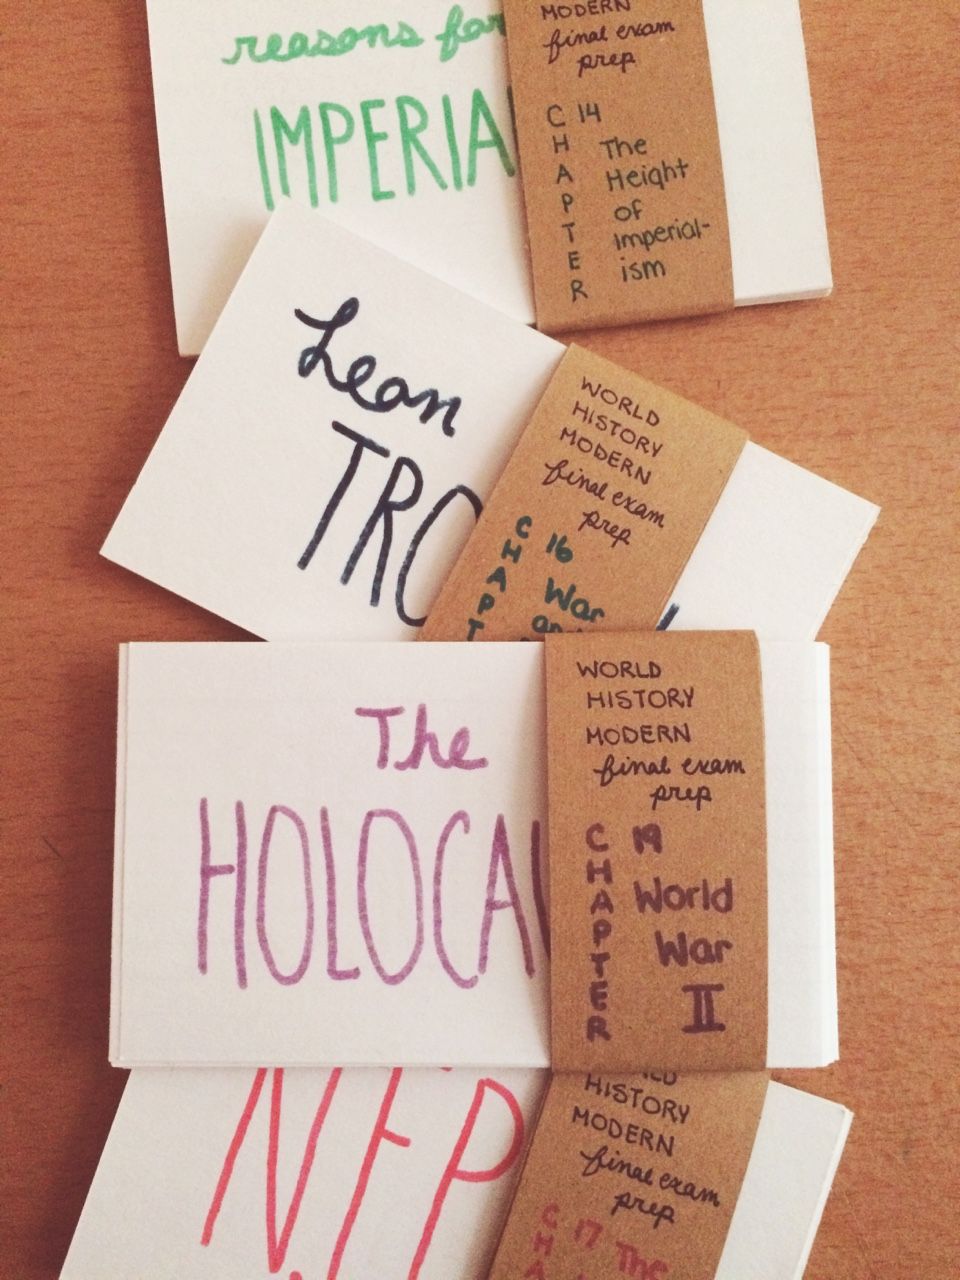 reasons for
IMPERIA
MODERN
final exam
prep
CHAPTER 14
The
Height
of
Imperial-
ism
Lean
TRO
WORLD
HISTORY
MODERN
final exam
prep
CHAPT 16
War
and
The
HOLOCAU
WORLD
HISTORY
MODERN
final exam
prep
CHAPTER 19
World
War
II
N.E.P
HISTORY
MODERN
final exam
prep
CHA 17 The